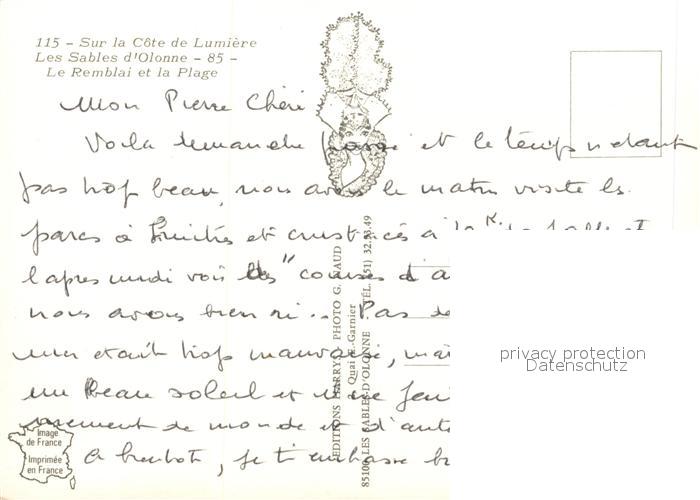 115 - Sur la Côte de Lumière
Les Sables d'Olonne - 85 -
Le Remblai et la Plage
Mon Pierre Chéri
Voila dimanche passé et le temps n'étant
pas trop beau, nous avons le matin visité les
parcs à huitres et crustacés à
l'apres midi voir les "courses d'a
nous avons bien ri... Pas de
mer etait trop mauvaise, mai
un beau soleil et une
de monde et d'auto
A bientot, je t'embrasse b
EDITIONS PHOTO G. NAUD
Quai E.-Garnier
85100 LES SABLES D'OLONNE (TÉL. (51) 32.53.49
Image
de France
Imprimée
en France
privacy protection
Datenschutz